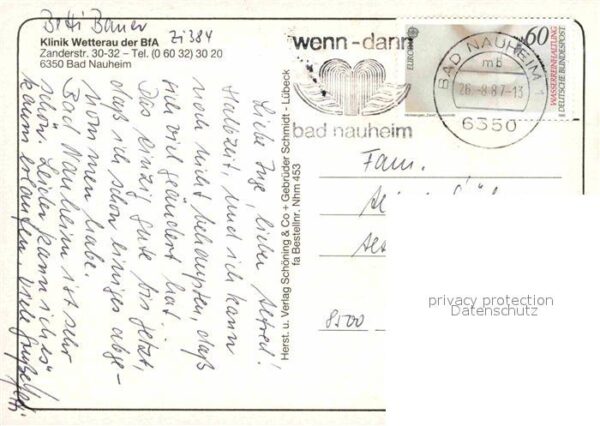 Betti Bauer
Zi 384
Klinik Wetterau der BfA
Zanderstr. 30-32 – Tel. (0 60 32) 30 20
6350 Bad Nauheim
Liebe Inge, lieber Alfred!
Halbzeit, und ich kann
noch nicht behaupten, daß
sich viel geändert hat.
Das einzig gute bis jetzt,
daß ich schon einiges abge-
nommen habe.
Bad Nauheim ist sehr
schön. Leider kann ich es
kaum erlaufen. Viele Grüße
Herst. u. Verlag Schöning & Co + Gebrüder Schmidt - Lübeck
fa Bestellnr. Nhm 453
wenn - dann
bad nauheim
EUROPA
60
WASSERREINHALTUNG
DEUTSCHE BUNDESPOST
BAD NAUHEIM 1
mb
26.-8.87-13
6350
Fam.
8500
privacy protection
Datenschutz